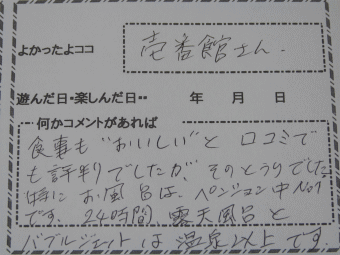 よかったよココ 壱番館さん.
遊んだ日・楽しんだ日・・ 年 月 日
何かコメントがあれば
食事も"おいしい"と 口コミで
も評判でしたが、そのとうりでした
特に お風呂は、ペンション中No1
です。24時間、露天風呂と
バブルジェットは温泉以上です。